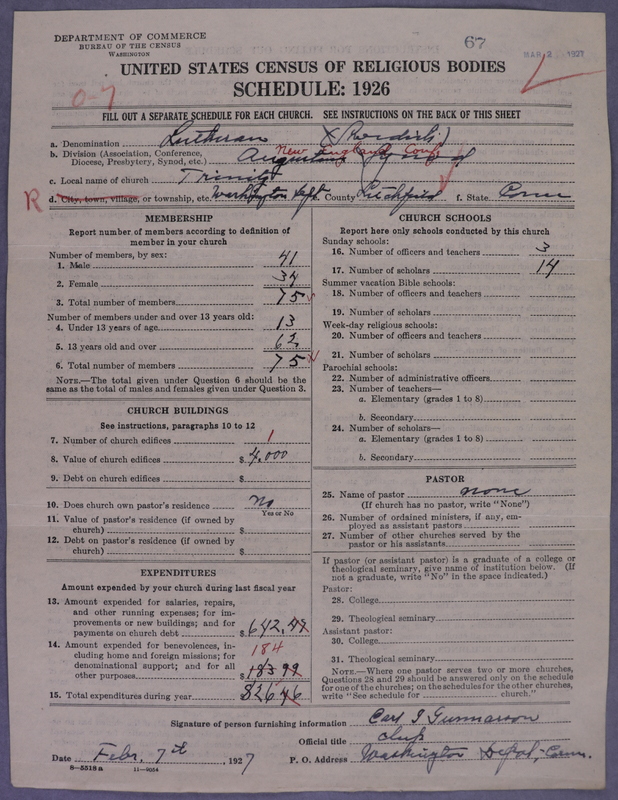 DEPARTMENT OF COMMERCE
BUREAU OF THE CENSUS
WASHINGTON
67
MAR 2 1927
UNITED STATES CENSUS OF RELIGIOUS BODIES
SCHEDULE: 1926
0-7
FILL OUT A SEPARATE SCHEDULE FOR EACH CHURCH. SEE INSTRUCTIONS ON THE BACK OF THIS SHEET
a. Denomination Lutheran X (Swedish)
b. Division (Association, Conference, Diocese, Presbytery, Synod, etc.) Augustana Synod New England Conf
c. Local name of church Trinity
R d. City, town, village, or township, etc. Washington Dept e. County Litchfield f. State Conn
MEMBERSHIP
Report number of members according to definition of
member in your church
Number of members, by sex:
1. Male 41
2. Female 34
3. Total number of members 75
Number of members under and over 13 years old:
4. Under 13 years of age 13
5. 13 years old and over 62
6. Total number of members 75
NOTE.—The total given under Question 6 should be
same as the total of males and females given under Question 3.
CHURCH BUILDINGS
See instructions, paragraphs 10 to 12
7. Number of church edifices 1
8. Value of church edifices $ 4,000
9. Debt on church edifices $
10. Does church own pastor's residence No
Yes or No
11. Value of pastor's residence (if owned by
church) $
12. Debt on pastor's residence (if owned by
church) $
EXPENDITURES
Amount expended by your church during last fiscal year
13. Amount expended for salaries, repairs,
and other running expenses; for im-
provements or new buildings; and for
payments on church debt $ 642,47
14. Amount expended for benevolences, in-
cluding home and foreign missions; for
denominational support; and for all
other purposes $ 183 99
184
15. Total expenditures during year 826 46
CHURCH SCHOOLS
Report here only schools conducted by this church
Sunday schools:
16. Number of officers and teachers 3
17. Number of scholars 14
Summer vacation Bible schools:
18. Number of officers and teachers
19. Number of scholars
Week-day religious schools:
20. Number of officers and teachers
21. Number of scholars
Parochial schools:
22. Number of administrative officers
23. Number of teachers—
a. Elementary (grades 1 to 8)
b. Secondary
24. Number of scholars—
a. Elementary (grades 1 to 8)
b. Secondary
PASTOR
25. Name of pastor none
(If church has no pastor, write "None")
26. Number of ordained ministers, if any, em-
ployed as assistant pastors
27. Number of other churches served by the
pastor or his assistants
If pastor (or assistant pastor) is a graduate of a college or
theological seminary, give name of institution below. (If
not a graduate, write "No" in the space indicated.)
Pastor:
28. College
29. Theological seminary
Assistant pastor:
30. College
31. Theological seminary
NOTE.—Where one pastor serves two or more churches,
Questions 28 and 29 should be answered only on the schedule
for one of the churches; on the schedules for the other churches,
write "See schedule for church."
Signature of person furnishing information Carl I Gunnarson
Official title
Date Febr. 7th, 1927 P. O. Address Washington Depot, Conn.
8—5518a 11—9054